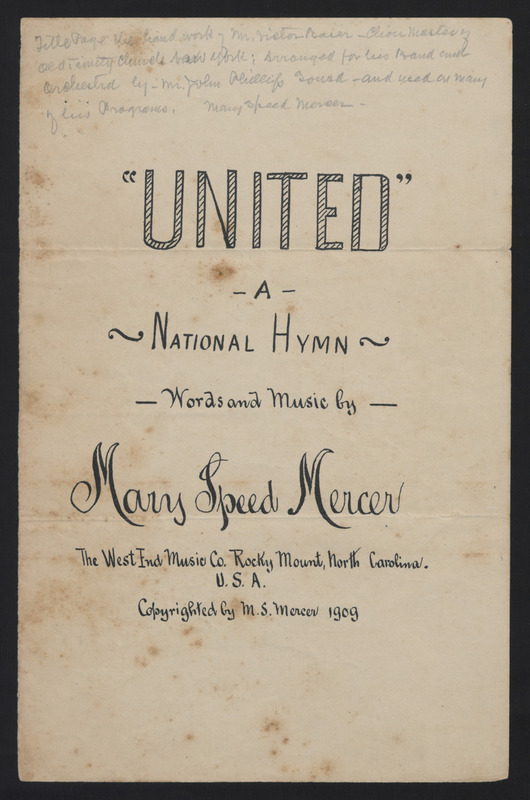 Title Page the hand work of Mr. Victor Baier - Choir Master of
Old Trinity Church New York; Arranged for his Band and
Orchestra by - Mr. John Phillip Sousa - and used on many
of his Programs. Mary Speed Mercer -
"UNITED"
- A -
~ NATIONAL HYMN ~
— Words and Music by —
Mary Speed Mercer
The West End Music Co. Rocky Mount, North Carolina.
U. S. A.
Copyrighted by M. S. Mercer 1909